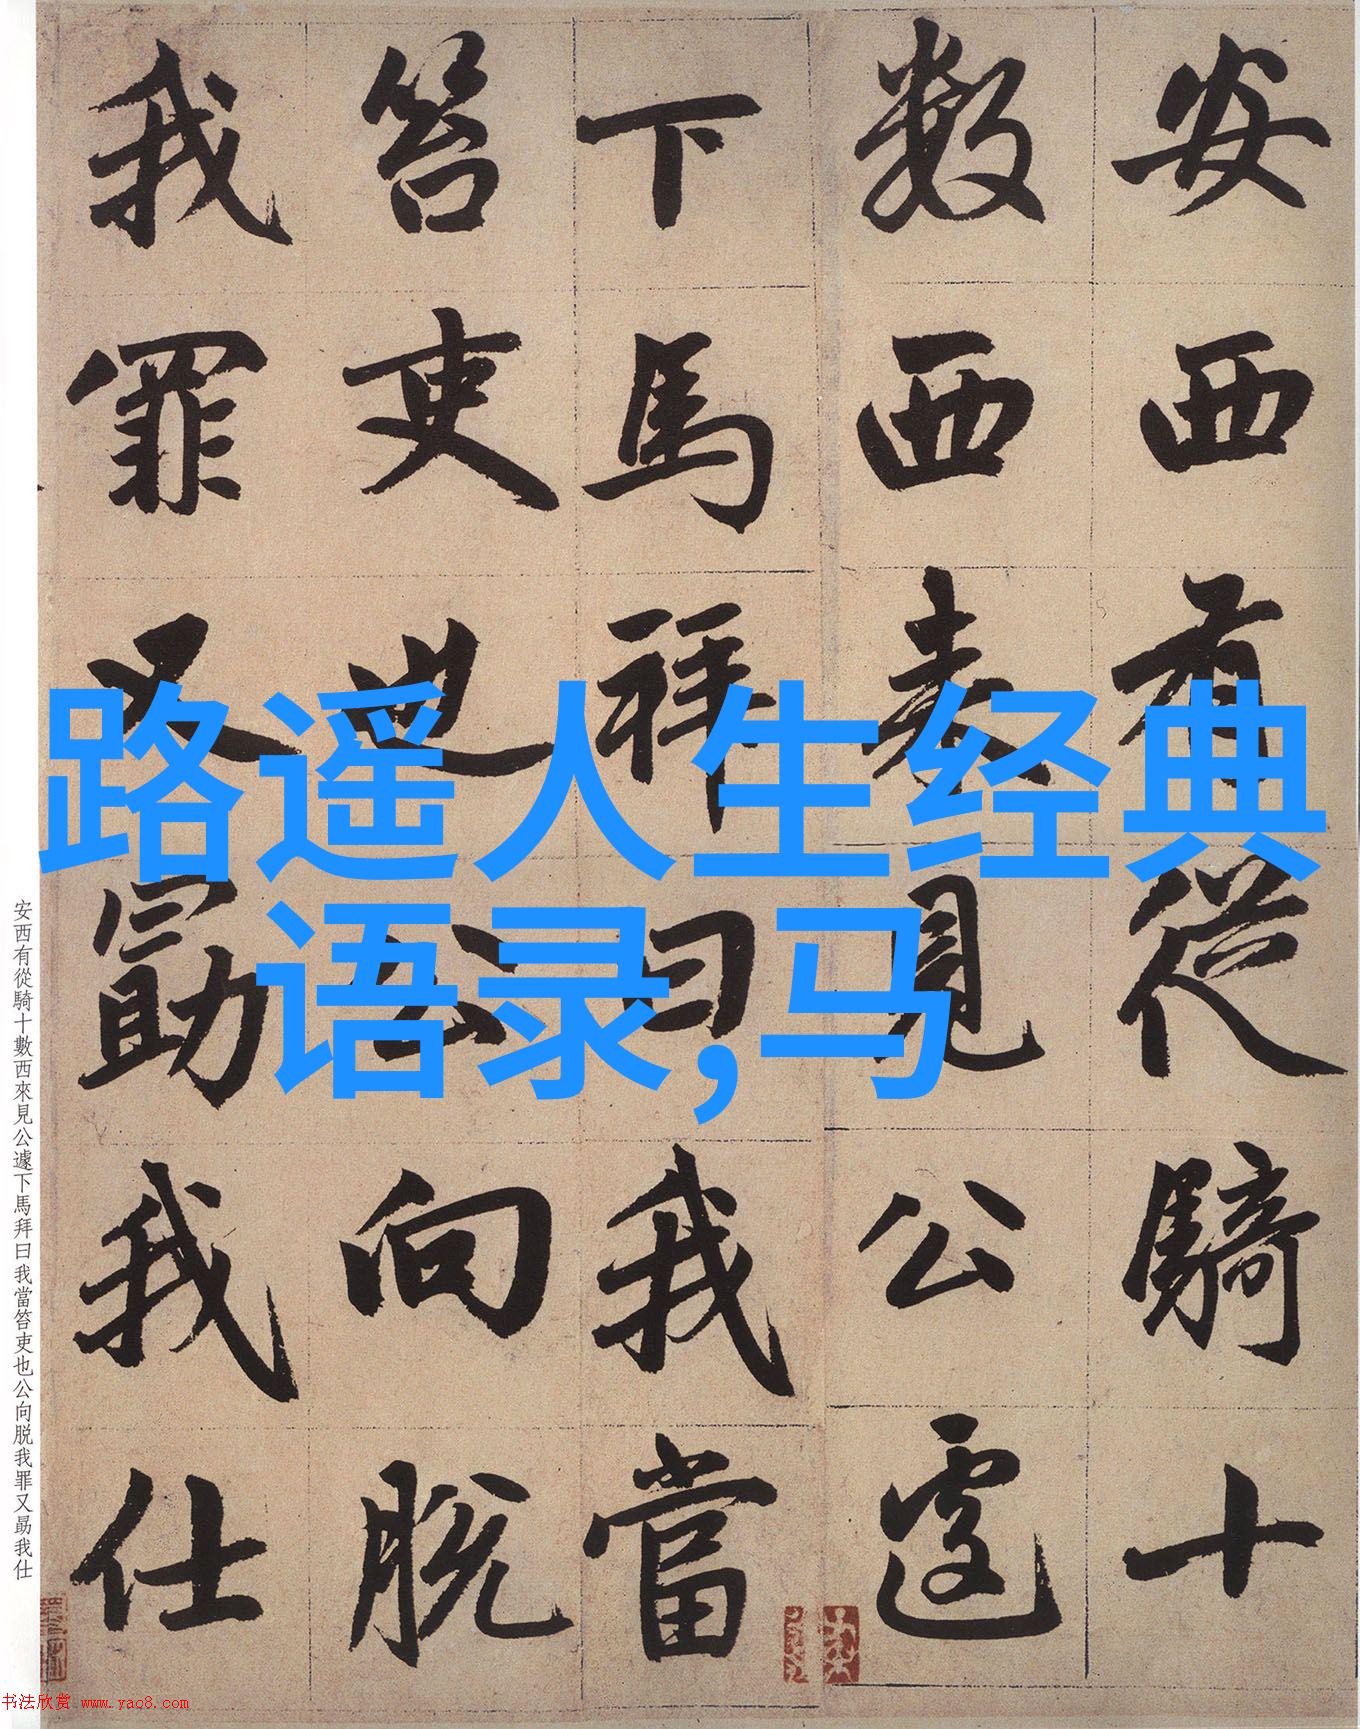 安西有從騎十
數西來見公遽
下馬拜曰我當
笞吏也公向脱
我罪又勗我仕
路遥人生经典
语录,马
安西有從騎十數西來見公遽下馬拜曰我當笞吏也公向脱我罪又勗我仕
书法欣赏 www.yac8.com